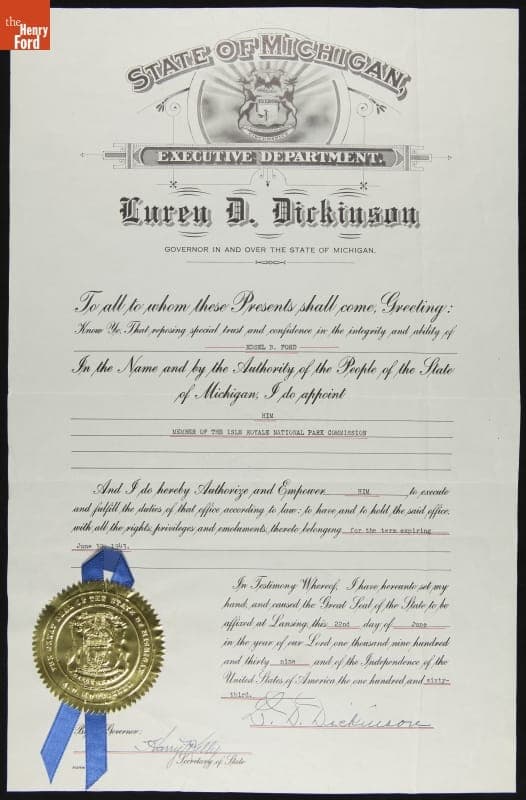 the
Henry
Ford
STATE OF MICHIGAN,
EXECUTIVE DEPARTMENT.
Luren D. Dickinson
GOVERNOR IN AND OVER THE STATE OF MICHIGAN.
To all to whom these Presents shall come, Greeting:
Know Ye, That reposing special trust and confidence in the integrity and ability of
EDSEL B. FORD
In the Name and by the Authority of the People of the State
of Michigan, I do appoint
HIM
MEMBER OF THE ISLE ROYALE NATIONAL PARK COMMISSION
And I do hereby Authorize and Empower HIM, to execute
and fulfill the duties of that office according to law: to have and to hold the said office,
with all the rights, privileges and emoluments, thereto belonging for the term expiring
June 1943.
In Testimony Whereof, I have hereunto set my
hand, and caused the Great Seal of the State to be
affixed at Lansing, this 22nd day of June
in the year of our Lord one thousand nine hundred
and thirty nine and of the Independence of the
United States of America the one hundred and sixty-
third.
L. D. Dickinson
Governor:
Harry F. Kelly
Secretary of State
THE GREAT SEAL OF THE STATE OF MICHIGAN